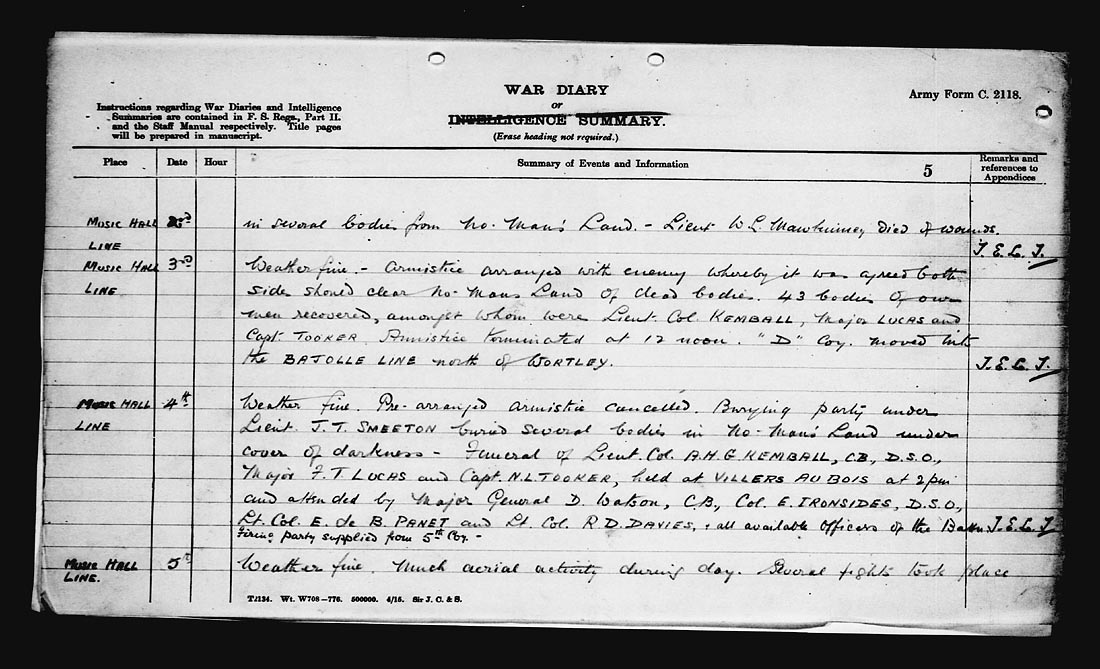 WAR DIARY
or
INTELLIGENCE SUMMARY.
(Erase heading not required.)
Army Form C. 2118.
Instructions regarding War Diaries and Intelligence
Summaries are contained in F. S. Regs., Part II.
and the Staff Manual respectively. Title pages
will be prepared in manuscript.
Place Date Hour Summary of Events and Information 5 Remarks and
references to
Appendices
MUSIC HALL in several bodies from No-Man's Land. - Lieut W. L. Mawhinney died of wounds.
LINE J. E. L. J.
MUSIC HALL 3rd Weather fine. - Armistice arranged with enemy whereby it was agreed both
LINE sides should clear No-Mans Land of dead bodies. 43 bodies of our
men recovered, amongst whom were Lieut. Col. KEMBALL, Major LUCAS and
Capt. TOOKER. Armistice terminated at 12 noon. "D" Coy. moved into
the BAJOLLE LINE north of WORTLEY. J. E. L. J.
MUSIC HALL 4th Weather fine. Pre-arranged armistice cancelled. Burying party under
LINE Lieut. J. T. SMEETON buried several bodies in No-Man's Land under
cover of darkness - Funeral of Lieut. Col. A.H.G KEMBALL, CB., D.S.O.,
Major F. T. LUCAS and Capt. N.L TOOKER, held at VILLERS AU BOIS at 2 pm
and attended by Major General D. Watson, C.B, Col. E. IRONSIDES, D.S.O,
Lt. Col. E. de B. PANET and Lt. Col. R D. DAVIES, & all available Officers of the Battn. J. E. L. J.
Firing party supplied from 5th Coy. -
MUSIC HALL 5th Weather fine. Much aerial activity during day. Several fights took place
LINE.
T2134. Wt. W708-776. 500000. 4/15. Sir J. C. & S.